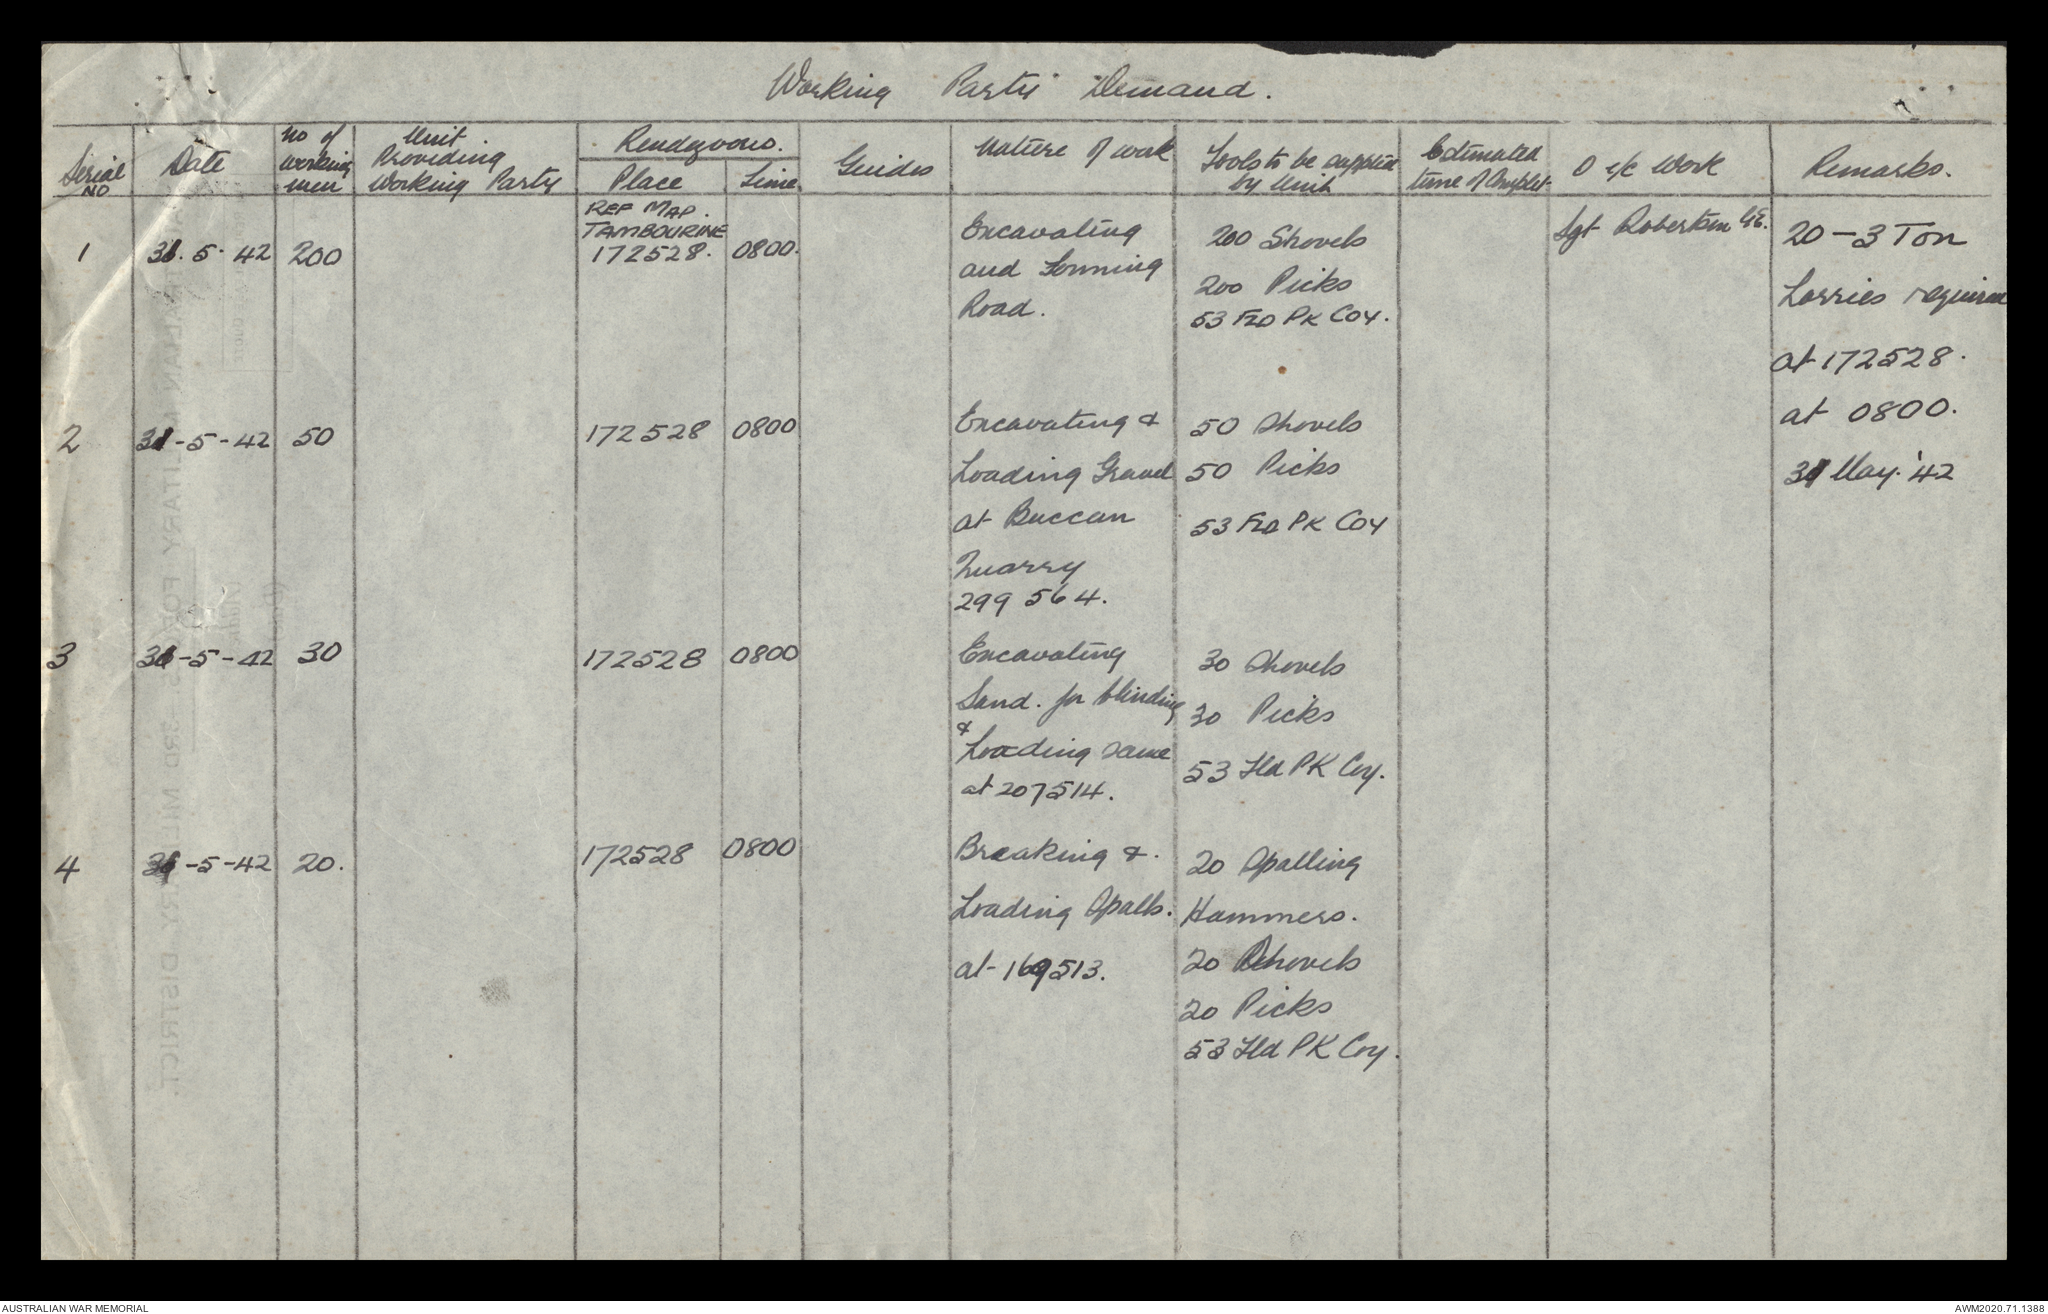 Working Party Demand.
Serial No
Date
No of working men
Unit Providing Working Party
Rendezvous.
Place
Time
Guides
Nature of work
Tools to be supplied by Unit
Estimated time of Complet.
O i/c Work
Remarks.
1
31. 5. 42
200
REF MAP.
TAMBOURINE
172528.
0800.
Excavating
and Forming
Road.
200 Shovels
200 Picks
53 FLD PK COY.
Sgt Robertson
20 - 3 Ton
Lorries required
at 172528.
at 0800.
31 May. '42
2
31-5-42
50
172528
0800
Excavating &
Loading Gravel
at Buccan
Quarry
299564.
50 Shovels
50 Picks
53 FLD PK COY
3
31-5-42
30
172528
0800
Excavating
Sand. for blinding
&
Loading same
at 207514.
30 Shovels
30 Picks
53 Fld PK Coy.
4
31-5-42
20.
172528
0800
Breaking &.
Loading Spalls.
at 169513.
20 Spalling
Hammers.
20 Shovels
20 Picks
53 Fld PK Coy.
MILITARY FORCES. 3RD MILITARY DISTRICT
AUSTRALIAN WAR MEMORIAL
AWM2020.71.1388